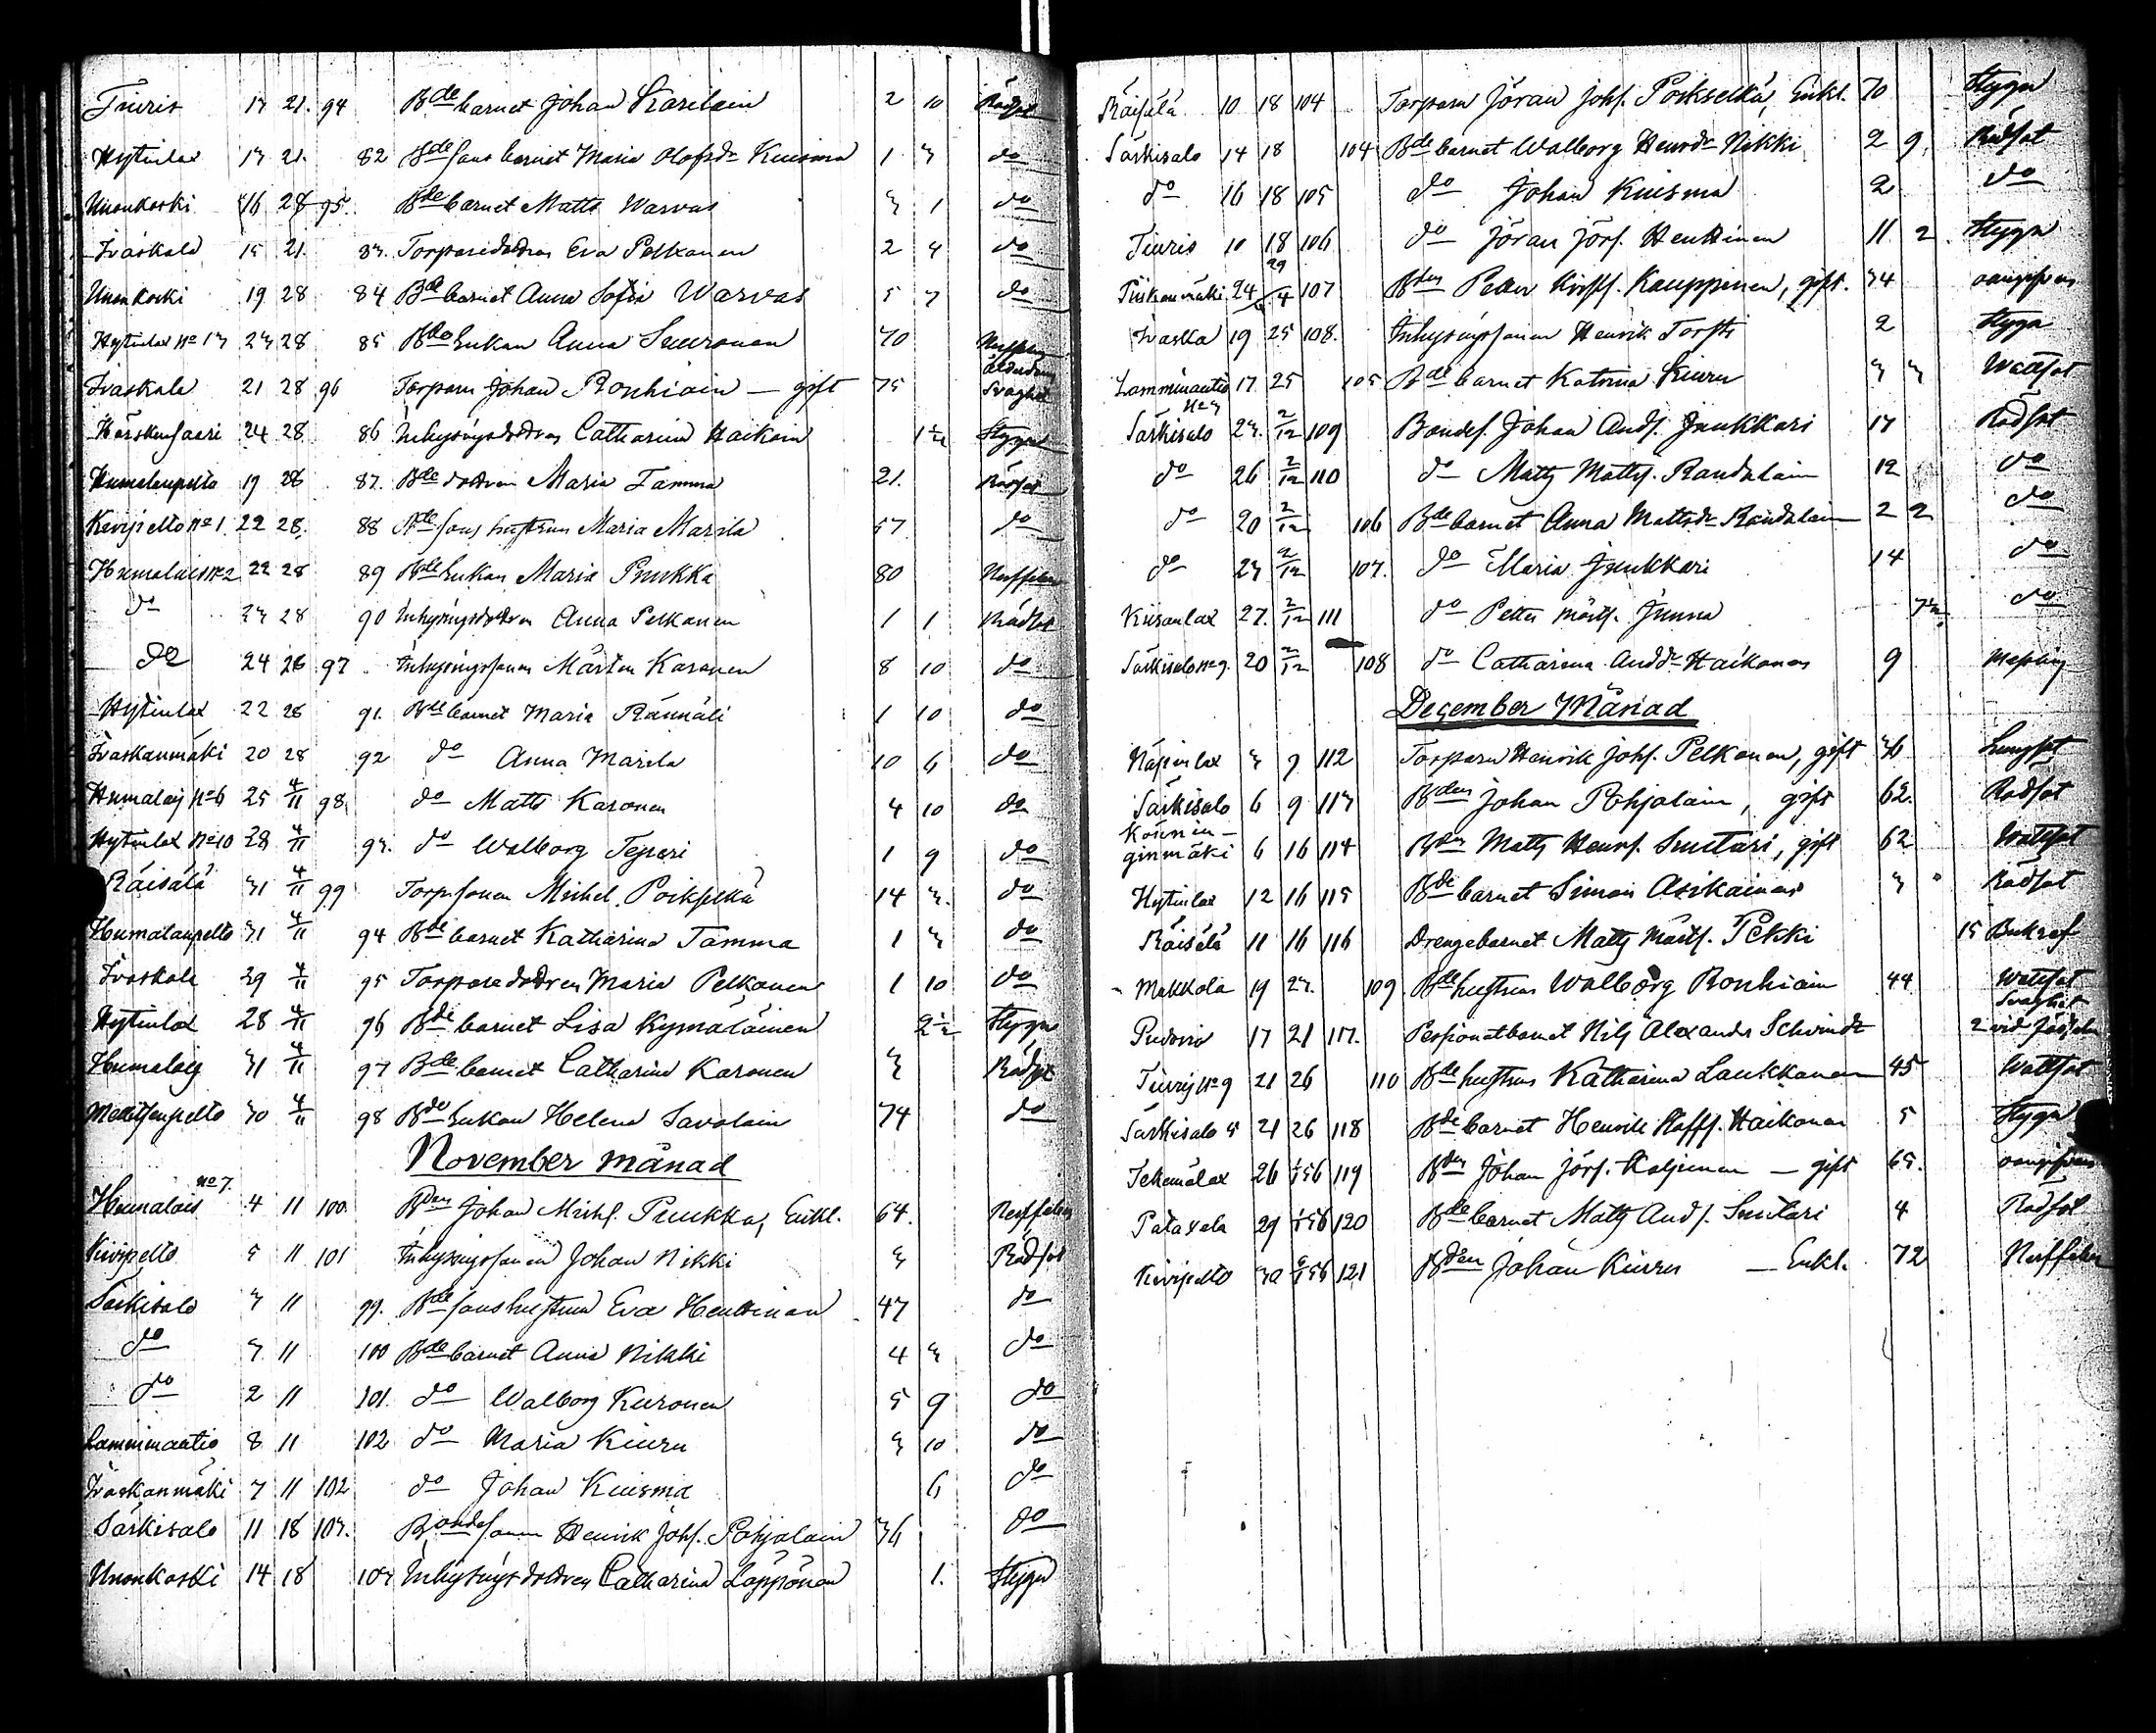 Tiuris 13 21. 94 Bde barnet Johan Karilain 2 10 Rödsot
Hytinlax 13 21. 82 Bde sons barnet Maria Olofsdr Kuisma 1 3 do
Unonkoski 16 28 95. Bde barnet Matts Warvas 3 1 do
Ivaskala 15 21. 83. Torparedottren Eva Pelkonen 2 4 do
Unonkoski 19 28 84 Bde barnet Anna Sofia Warvas 5 7 do
Hytinlax No 13 23 28 85 Bde Enkan Anna Seuronen 70
Ivaskala 21 28 96 Torparn Johan Ronhiain — gift 75 Ålderdoms Svaghet
Härskensaari 24 28 86 Inhysingsdottren Catharina Haikoin 1 1/2 Stygn
Humalanpelto 19 28 87. Bde dottren Maria Tamma 21. Rödsot
Kivipelto No 1. 22 28. 88 Bde sons hustrun Maria Marila 57 do
Humalais No 2 22 28 89 Bde Enkan Maria Puukka 80
do 23 28 90 Inhysingsdottren Anna Pelkonen 1 1 Rödsot
do 24 28 97 Inhysingssonen Mårten Karonen 8 10 do
Hytinlax 22 28 91. Bde barnet Maria Rännäli 1 10 do
Ivaskanmäki 20 28 92 do Anna Marila 10 6 do
Humalais No 6 25 4/11 98 do Matts Karonen 4 10 do
Hytinlax No 10 28 4/11 93. do Walborg Tepari 1 9 do
Räisälä 31 4/11 99 Torpssonen Michel Poikselkä 14 3. do
Humalanpelto 31 4/11 94 Bde barnet Katharina Tamma 1 3 do
Ivaskala 29 4/11 95 Torparedottren Maria Pelkonen 1 10 do
Hytinlax 28 4/11 96 Bde barnet Lisa Kymäläinen 2 1/2 Stygn
Humalais 31 4/11 97 Bde barnet Catharina Karonen 3 Rödsot
30 4/11 98 Bde Enkan Helena Savolain 74 do
November månad
Humalais No 7. 4 11 100. Bden Johan Michs. Puukka, Enkl. 64.
Kivipelto 5 11 101 Inhysingssonen Johan Nikki 3 Rödsot
Särkisalo 3 11 99. Bde sons hustrun Eva Henttinen 47 do
do 7 11 100 Bde barnet Anna Nikki 4 3 do
do 2 11 101. do Walborg Kuronen 5 9 do
Lamminautio 8 11 102 do Maria Kiuru 3 10 do
Ivaskanmäki 7 11 102 do Johan Kuisma 6 do
Särkisalo 11 18 103. Bondesonen Henrik Johs. Pohjolain 36 do
Unonkoski 14 18 103 Inhysingsdottren Catharina Läppönen 1. Stygn
Räisälä 10 18 104 Torparn Jöran Johs. Poikselkä, Enkl. 70 Stygn
Särkisalo 14 18 104 Bde barnet Walborg Henrsdr Nikki 2 9. Rödsot
do 16 18 105 do Johan Kuisma 2 do
Tiuris 10 18 106 do Jöran Jörs. Henttinen 11 2. Stygn
Tiiskanmäki 24 29/4 107 Bden Petter Kauppinen, gift. 34 oangifven
Ivaska 19 25 108. Inhysingssonen Henrik Torsti 2 Stygn
Lamminautio No 3 17 25 105 Bde barnet Katrina Kiuru 3 3 Wattsot
Särkisalo 23. 2/12 109 Bondes. Johan Ands. Junkkari 17 Rödsot
do 26 2/12 110 do Matts Matts. Randalain 12 do
do 20 2/12 106 Bde barnet Anna Mattsdr Randalain 2 2 do
do 23 2/12 107. do Maria Junkkari 14 do
Kiisanlax 27. 2/12 111 do Petter Mårts. Junna 7 1/2. do
Särkisalo No 9. 20 2/12 108 do Catharina Andsdr Haikonen 9 Messling
December Månad
Näpinlax 3 9 112 Torparn Henrik Johs. Pelkonen, gift 36 Lungsot
Särkisalo 6 9 113 Bden Johan Pohjolain, gift 62. Rödsot
Konnin-
ginmäki 6 16 114 Bden Matts Henrs. Suutari, gift 62 Wattsot
Hytinlax 12 16 115 Bde barnet Simon Asikainen 3 Rödsot
Räisälä 11 16 116 Drengebarnet Matts Mårts. Pekki 15 Bukref
Makkola 19 23. 109 Bde hustrun Walborg Ronhiain 44 Wattsot
17 21 117. Nils Alexander Schvindt 2 Svaghet vid födseln
Tiuris No 9 21 26 110 Bde hustrun Katharina Laukkanen 45 Wattsot
Särkisalo 5 21 26 118 Bde barnet Henrik Staffs. Haikonen 5 Stygn
26 1/1 56 119 Bden Johan Jörs. Koljonen — gift 65. oangifven
29 1/1 56 120 Bde barnet Matts Ands. Suutari 4 Rödsot
Kivipelto 30 6/1 56 121 Bden Johan Kiuru — Enkl. 72